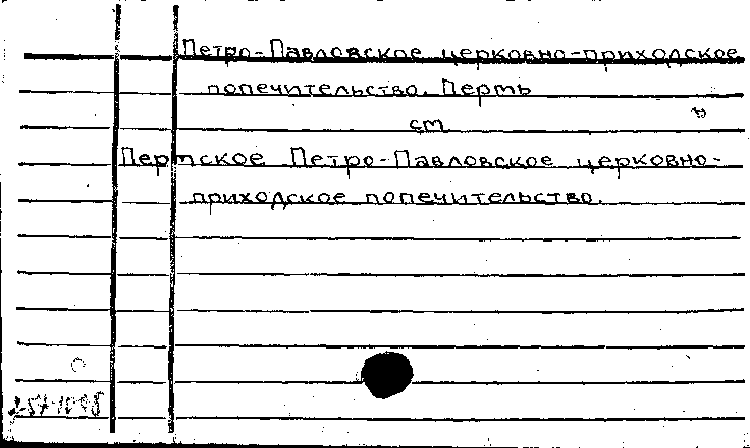 Петро-Павловское церковно-приходское
попечительство. Пермь
ст
Пермское Петро-Павловское церковно-
приходское попечительство.